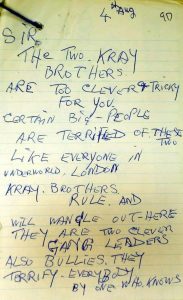 4th Aug 90
SIR.
THE TWO. KRAY
BROTHERS
ARE TOO CLEVER & TRICKY
FOR YOU.
CERTAIN BIG-PEOPLE
ARE TERRIFIED OF. THESE
TWO
LIKE EVERYONE IN
UNDERWORLD. LONDON
KRAY. BROTHERS.
RULE. AND
WILL WANGLE OUT-HERE
THEY ARE TWO CLEVER
GANG LEADERS
ALSO BULLIES. THEY
TERRIFY-EVERYBODY
BY ONE WHO. KNOWS